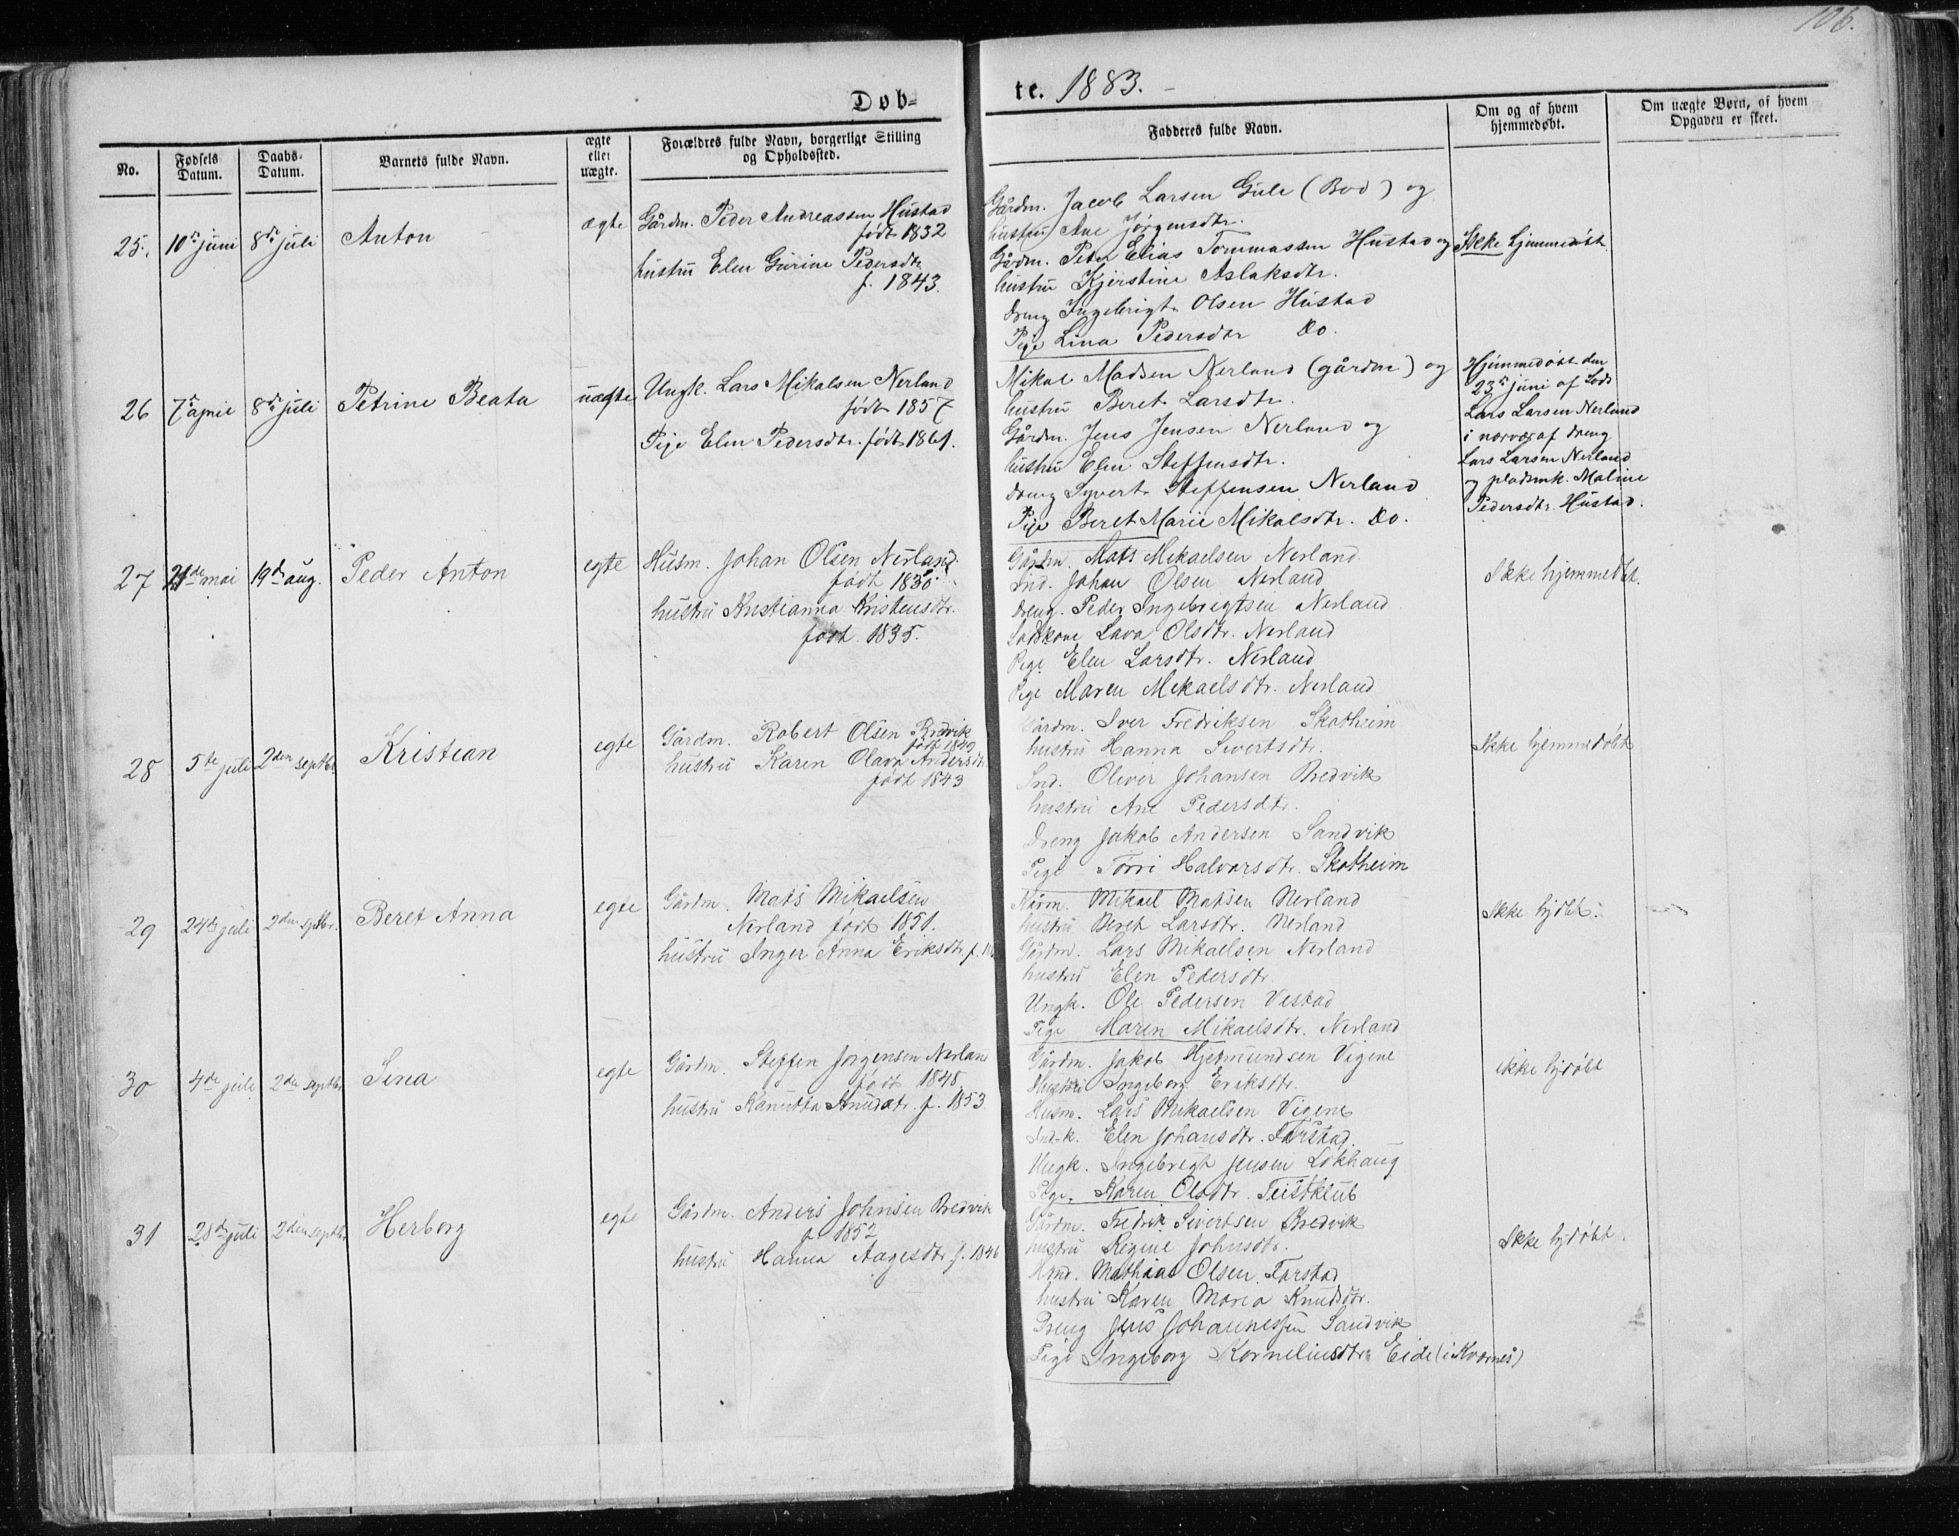 106.
Døb-
te. 1883.
No.
Fødsels Datum.
Daabs-Datum.
Barnets fulde Navn.
ægte eller uægte.
Forældres fulde Navn, borgerlige Stilling og Opholdssted.
Fadderes fulde Navn.
Om og af hvem hjemmedøbt.
Om uægte Børn, af hvem Opgaven er skeet.
25. 10de juni 8de juli Anton ægte
Gårdm. Peder Andreassen Hustad
født 1832
hustru Elen Gurine Pedersdtr.
f. 1843.
Gårdm. Jacob Larsen Gule (Bod) og
hustru Ane Jørgensdtr.
Gårdm. Peder Elias Tommassen Hustad og
hustru Kjerstine Aslaksdtr.
dreng Ingebrigt Olsen Hustad
Pige Lina Pedersdtr Do.
Ikke hjemmedøbt.
26 7de april 8de juli Petrine Beata uægte
Ungk. Lars Mikalsen Nerland
født 1857
Pige Elen Pedersdtr. født 1861.
Mikal Madsen Nerland (gårdm) og
hustru Beret Larsdtr.
Gårdm. Jens Jensen Nerland og
hustru Elen Steffensdtr.
dreng Syvert Steffensen Nerland
Pige Beret Marie Mikalsdtr. Do.
Hjemmedøbt den
23de juni af Lods
Lars Larsen Nerland
i nærvær af dreng
Lars Larsen Nerland
og pladsmk. Maline
Pedersdtr. Hustad.
27 21de mai 19de aug. Peder Anton egte
Husm. Johan Olsen Nerland
født 1830.
hustru Kristianna Kristensdtr.
født 1835.
Gårdm. Mats Mikaelsen Nerland
Ind. Johan Olsen Nerland
Dreng. Peder Ingebrigtsen Nerland
Lodskone Lava Olsdtr. Nerland
Pige Elen Larsdtr. Nerland
Pige Maren Mekaelsdtr. Nerland
Ikke hjemmedøbt.
28 5te juli 2den septbr. Kristian egte
Gårdm. Robert Olsen Bredvik
født 1849
hustru Karen Olava Andersdtr
født 1843
Gårdm. Iver Fredriksen Skotheim
hustru Hanna Sivertsdtr.
Ind. Oliver Johansen Bredvik
hustru Ane Pedersdtr.
Dreng Jakob Andersen Sandvik
Pige Torri Halvorsdtr. Skotheim
Ikke hjemmedøbt
29 24de juli 2den septbr. Beret Anna egte
Gårdm. Mats Mikaelsen
Nerland født 1851.
hustru Inger Anna Eriksdtr. f.
Kårm. Mikael Matsen Nerland
hustru Beret Larsdtr. Nerland
Gårdm. Lars Mikaelsen Nerland
hustru Elen Pedersdtr
Ungk. Ole Pedersen Vestad
Pige Maren Mikaelsdtr. Nerland
Ikke hjdøbt.
30 4de juli 2den septbr. Sina egte
Gårdm. Steffen Jørgensen Nerlan
født 1848.
hustru Kanutta Knudsdtr. f. 1853.
Gårdm. Jakob Hjetmundsen Vigene
Hustru Ingeborg Eriksdtr.
Husm. Lars Mikaelsen Vigene
Ind.k. Elen Johansdtr. Farstad.
Ungk. Ingebrigt Jensen Løkhaug
Pige. Karen Olsdtr. Teistklub
ikke hjdøbt
31 28de juli 2den septbr. Herborg egte
Gårdm. Anders Johnsen Bredvik
f. 1852
hustru Hanna Aagesdtr. f. 1846
Gårdm. Fredrik Sivertsen Bredvik
hustru Regine Johnsdtr.
Ind. Mathias Olsen Farstad
hustru Karen Maria Knudsdtr.
Dreng Jens Johannessen Sandvik
Pige Ingeborg Korneliusdtr Eide (i Kvernes)
Ikke hjdøbt.